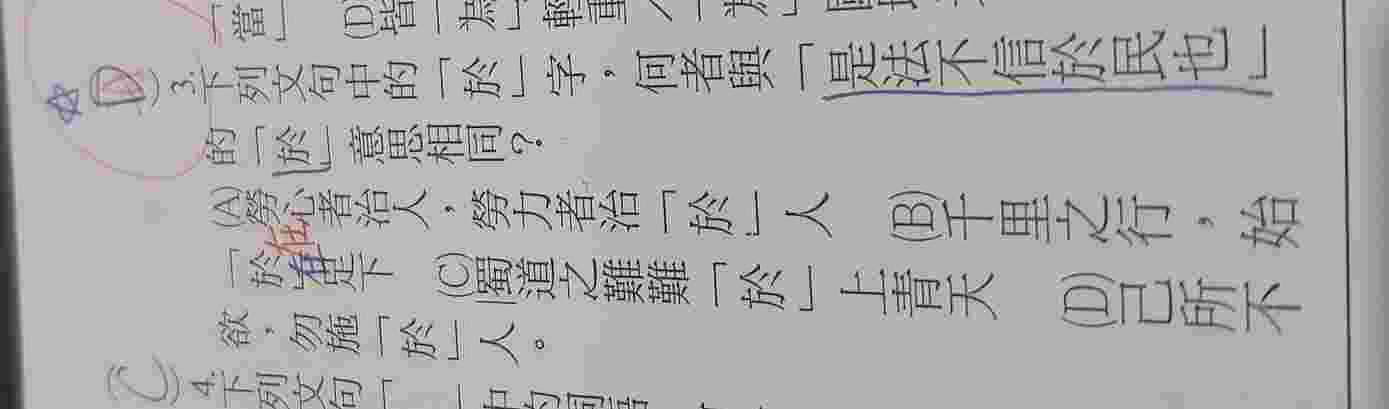 當」 (D)皆「為」輕重／「為」國
(D) 3.下列文句中的「於」字，何者與「是法不信於民也」
的「於」意思相同？
(A)勞心者治人，勞力者治「於」人 (B)千里之行，始
在
「於」足下 (C)蜀道之難難「於」上青天 (D)己所不
欲，勿施「於」人。
(C) 4.下列文句「